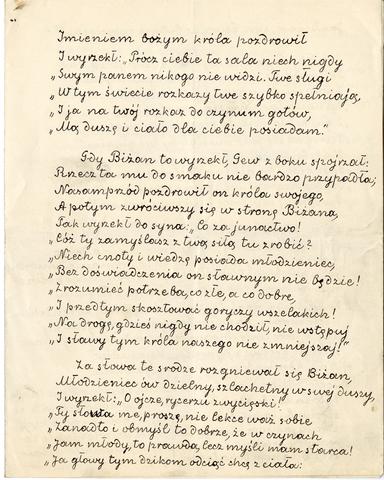 Imieniem bożym króla pozdrowił
I wyrzekł: „Prócz ciebie ta sala niech nigdy
„Swym panem nikogo nie widzi. Twe sługi
„W tym świecie rozkazy twe szybko spełniają,
„I ja na twój rozkaz do czynum gotów,
„Mą duszę i ciało dla ciebie posiadam."
Gdy Biżan to wyrzekł, Gew z boku spojrzał:
Rzecz ta mu do smaku nie bardzo przypadła;
Nasamprzód pozdrowił on króla swojego,
A potym zwróciwszy się w stronę Biżana,
Tak wyrzekł do syna: „Co za junactwo!
„Cóż ty zamyślasz z twą siłą tu zrobić?
„Niech cnoty i wiedzę posiada młodzieniec,
„Bez doświadczenia on sławnym nie będzie!
„Zrozumieć potrzeba, co złe, a co dobre,
„I przedtym skosztować goryczy wszelakich!
„Na drogę, gdzieś nigdy nie chodził, nie wstępuj
„I sławy tym króla naszego nie zmniejszaj!"
Za słowa te srodze rozgniewał się Biżan,
Młodzieniec ów dzielny, szlachetny w swej duszy,
I wyrzekł: „O ojcze, rycerzu zwycięski!
„Ty słowa me, proszę, nie lekce waż sobie
„Zanadto i obmyśl to dobrze, że w czynach
„Jam młody, to prawda, lecz myśli mam starca!
„Ja głowy tym dzikom odciąć chcę z ciała: